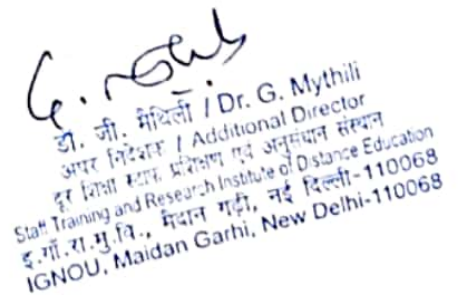 G. 
डॉ. जी. मैथिली / Dr. G. Mythili
अपर निदेशक / Additional Director
दूर शिक्षा स्टाफ प्रशिक्षण एवं अनुसंधान संस्थान
Staff Training and Research Institute of Distance Education
इ.गाँ.रा.मु.वि., मैदान गढ़ी, नई दिल्ली-110068
IGNOU, Maidan Garhi, New Delhi-110068